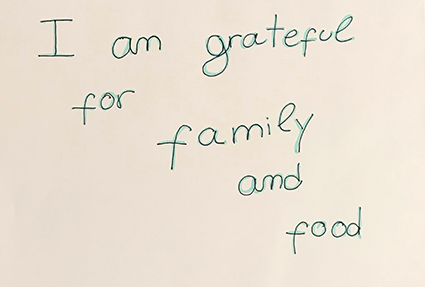 I am grateful
for
family
and
food